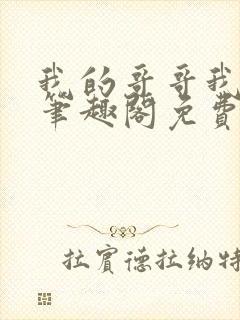 我的哥哥我
笔趣阁免费
拉宾德拉纳特